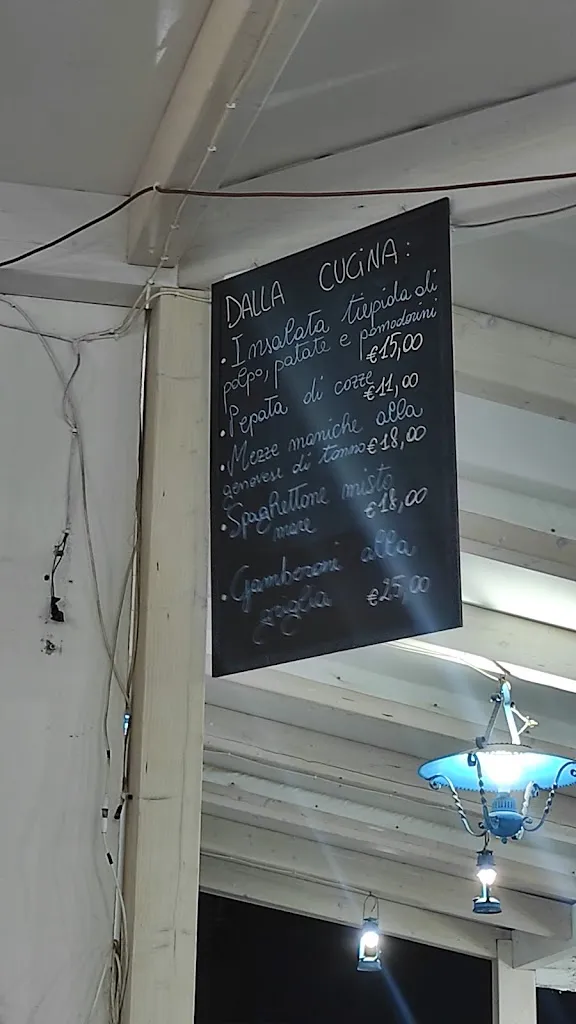 DALLA CUCINA:
• Insalata tiepida di
polpo, patate e pomodorini
€15,00
• Pepata di cozze
€11,00
• Mezze maniche alla
genovese di tonno €18,00
• Spaghettone misto
mare €18,00
• Gamberoni alla
griglia €25,00